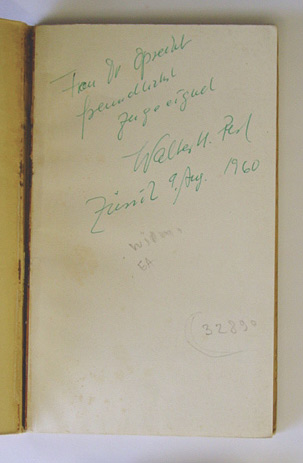 Frau Dr Oprecht
freundlichst
zugeeignet
Walter H. Perl
Zürich 9. Aug. 1960
Widm.
EA
32890